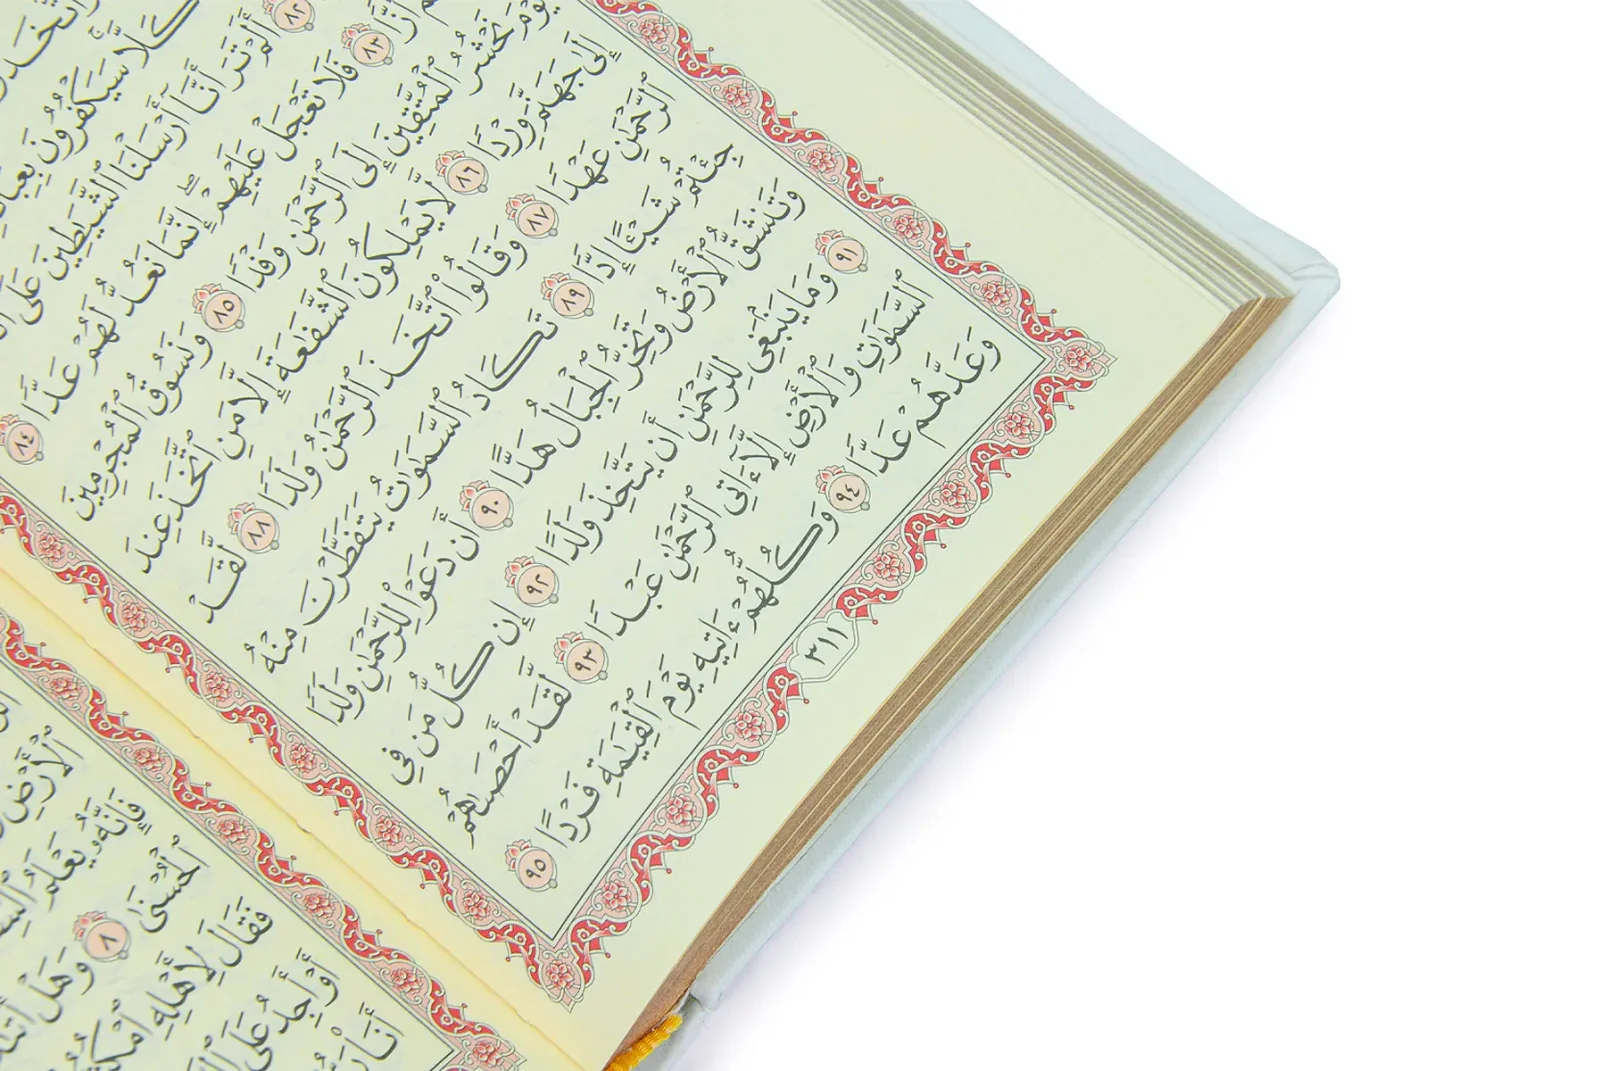 كَلَّا سَيَكْفُرُونَ
٨٢ أَلَمْ تَرَ أَنَّآ أَرْسَلْنَا ٱلشَّيَٰطِينَ عَلَى
أَزًّا ٨٣ فَلَا تَعْجَلْ عَلَيْهِمْ ۖ إِنَّمَا نَعُدُّ لَهُمْ عَدًّا ٨٤
يَوْمَ نَحْشُرُ ٱلْمُتَّقِينَ إِلَى ٱلرَّحْمَٰنِ وَفْدًا ٨٥ وَنَسُوقُ ٱلْمُجْرِمِينَ
إِلَىٰ جَهَنَّمَ وِرْدًا ٨٦ لَّا يَمْلِكُونَ ٱلشَّفَٰعَةَ إِلَّا مَنِ ٱتَّخَذَ عِندَ
ٱلرَّحْمَٰنِ عَهْدًا ٨٧ وَقَالُوا۟ ٱتَّخَذَ ٱلرَّحْمَٰنُ وَلَدًا ٨٨ لَّقَدْ
جِئْتُمْ شَيْـًٔا إِدًّا ٨٩ تَكَادُ ٱلسَّمَٰوَٰتُ يَتَفَطَّرْنَ مِنْهُ
وَتَنشَقُّ ٱلْأَرْضُ وَتَخِرُّ ٱلْجِبَالُ هَدًّا ٩٠ أَن دَعَوْا۟ لِلرَّحْمَٰنِ وَلَدًا
٩١ وَمَا يَنۢبَغِى لِلرَّحْمَٰنِ أَن يَتَّخِذَ وَلَدًا ٩٢ إِن كُلُّ مَن فِى
ٱلسَّمَٰوَٰتِ وَٱلْأَرْضِ إِلَّآ ءَاتِى ٱلرَّحْمَٰنِ عَبْدًا ٩٣ لَّقَدْ أَحْصَىٰهُمْ
وَعَدَّهُمْ عَدًّا ٩٤ وَكُلُّهُمْ ءَاتِيهِ يَوْمَ ٱلْقِيَٰمَةِ فَرْدًا ٩٥
٣١١
ٱلْأَرْضِ
فَإِنَّهُۥ يَعْلَمُ
ٱلْحُسْنَىٰ ٨ وَهَلْ
فَقَالَ لِأَهْلِهِ
أَوْ أَجِدُ عَلَى